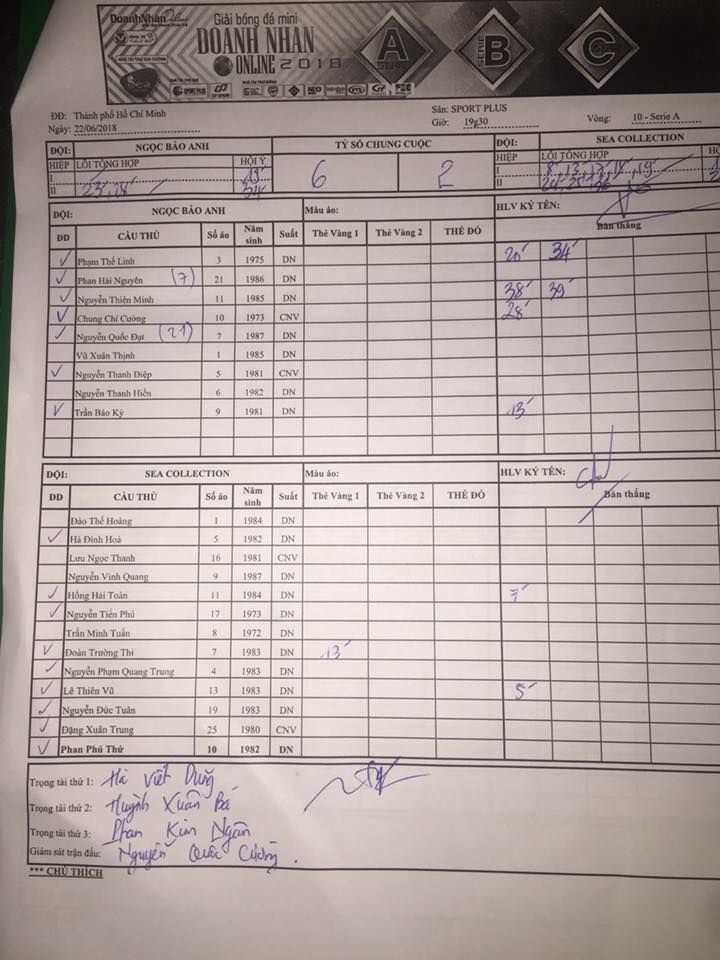 DoanhNhân Online
Giải bóng đá mini
DOANH NHÂN
ONLINE 2018
A SERIE
B SERIE
C SERIE
ĐĐ: Thành phố Hồ Chí Minh Sân: SPORT PLUS
Ngày: 22/06/2018 Giờ: 19g30 Vòng: 10 - Serie A
ĐỘI: NGỌC BẢO ANH TỶ SỐ CHUNG CUỘC ĐỘI: SEA COLLECTION
HIỆP LỖI TỔNG HỢP HỘI Ý 6 2 HIỆP LỖI TỔNG HỢP
I I
II II
ĐỘI: NGỌC BẢO ANH Màu áo: HLV KÝ TÊN:
ĐD CẦU THỦ Số áo Năm sinh Suất Thẻ Vàng 1 Thẻ Vàng 2 THẺ ĐỎ Bàn thắng
✓ Phạm Thế Linh 3 1975 DN 20' 34'
✓ Phan Hải Nguyên (7) 21 1986 DN
✓ Nguyễn Thiện Minh 11 1985 DN 38' 39'
✓ Chung Chí Cường 10 1973 CNV 28'
✓ Nguyễn Quốc Đạt (21) 7 1987 DN
Vũ Xuân Thịnh 1 1985 DN
✓ Nguyễn Thanh Điệp 5 1981 CNV
Nguyễn Thanh Hiền 6 1982 DN
✓ Trần Bảo Kỳ 9 1981 DN 13'
ĐỘI: SEA COLLECTION Màu áo: HLV KÝ TÊN:
ĐD CẦU THỦ Số áo Năm sinh Suất Thẻ Vàng 1 Thẻ Vàng 2 THẺ ĐỎ Bàn thắng
Đào Thế Hoàng 1 1984 DN
✓ Hà Đình Hoà 5 1982 DN
Lưu Ngọc Thanh 16 1981 CNV
Nguyễn Vinh Quang 9 1987 DN
✓ Hồng Hải Toàn 11 1984 DN 7'
✓ Nguyễn Tiến Phú 17 1973 DN
Trần Minh Tuấn 8 1972 DN
✓ Đoàn Trường Thi 7 1983 DN 13'
✓ Nguyễn Phạm Quang Trung 4 1983 DN
✓ Lê Thiên Vũ 13 1983 DN 5'
✓ Nguyễn Đức Tuân 19 1983 DN
✓ Đặng Xuân Trung 25 1980 CNV
✓ Phan Phú Thứ 10 1982 DN
Trọng tài thứ 1: Hà Việt Dũng
Trọng tài thứ 2: Huỳnh Xuân Bá
Trọng tài thứ 3: Phan Kim Ngân
Giám sát trận đấu: Nguyễn Quốc Cường.
*** CHÚ THÍCH